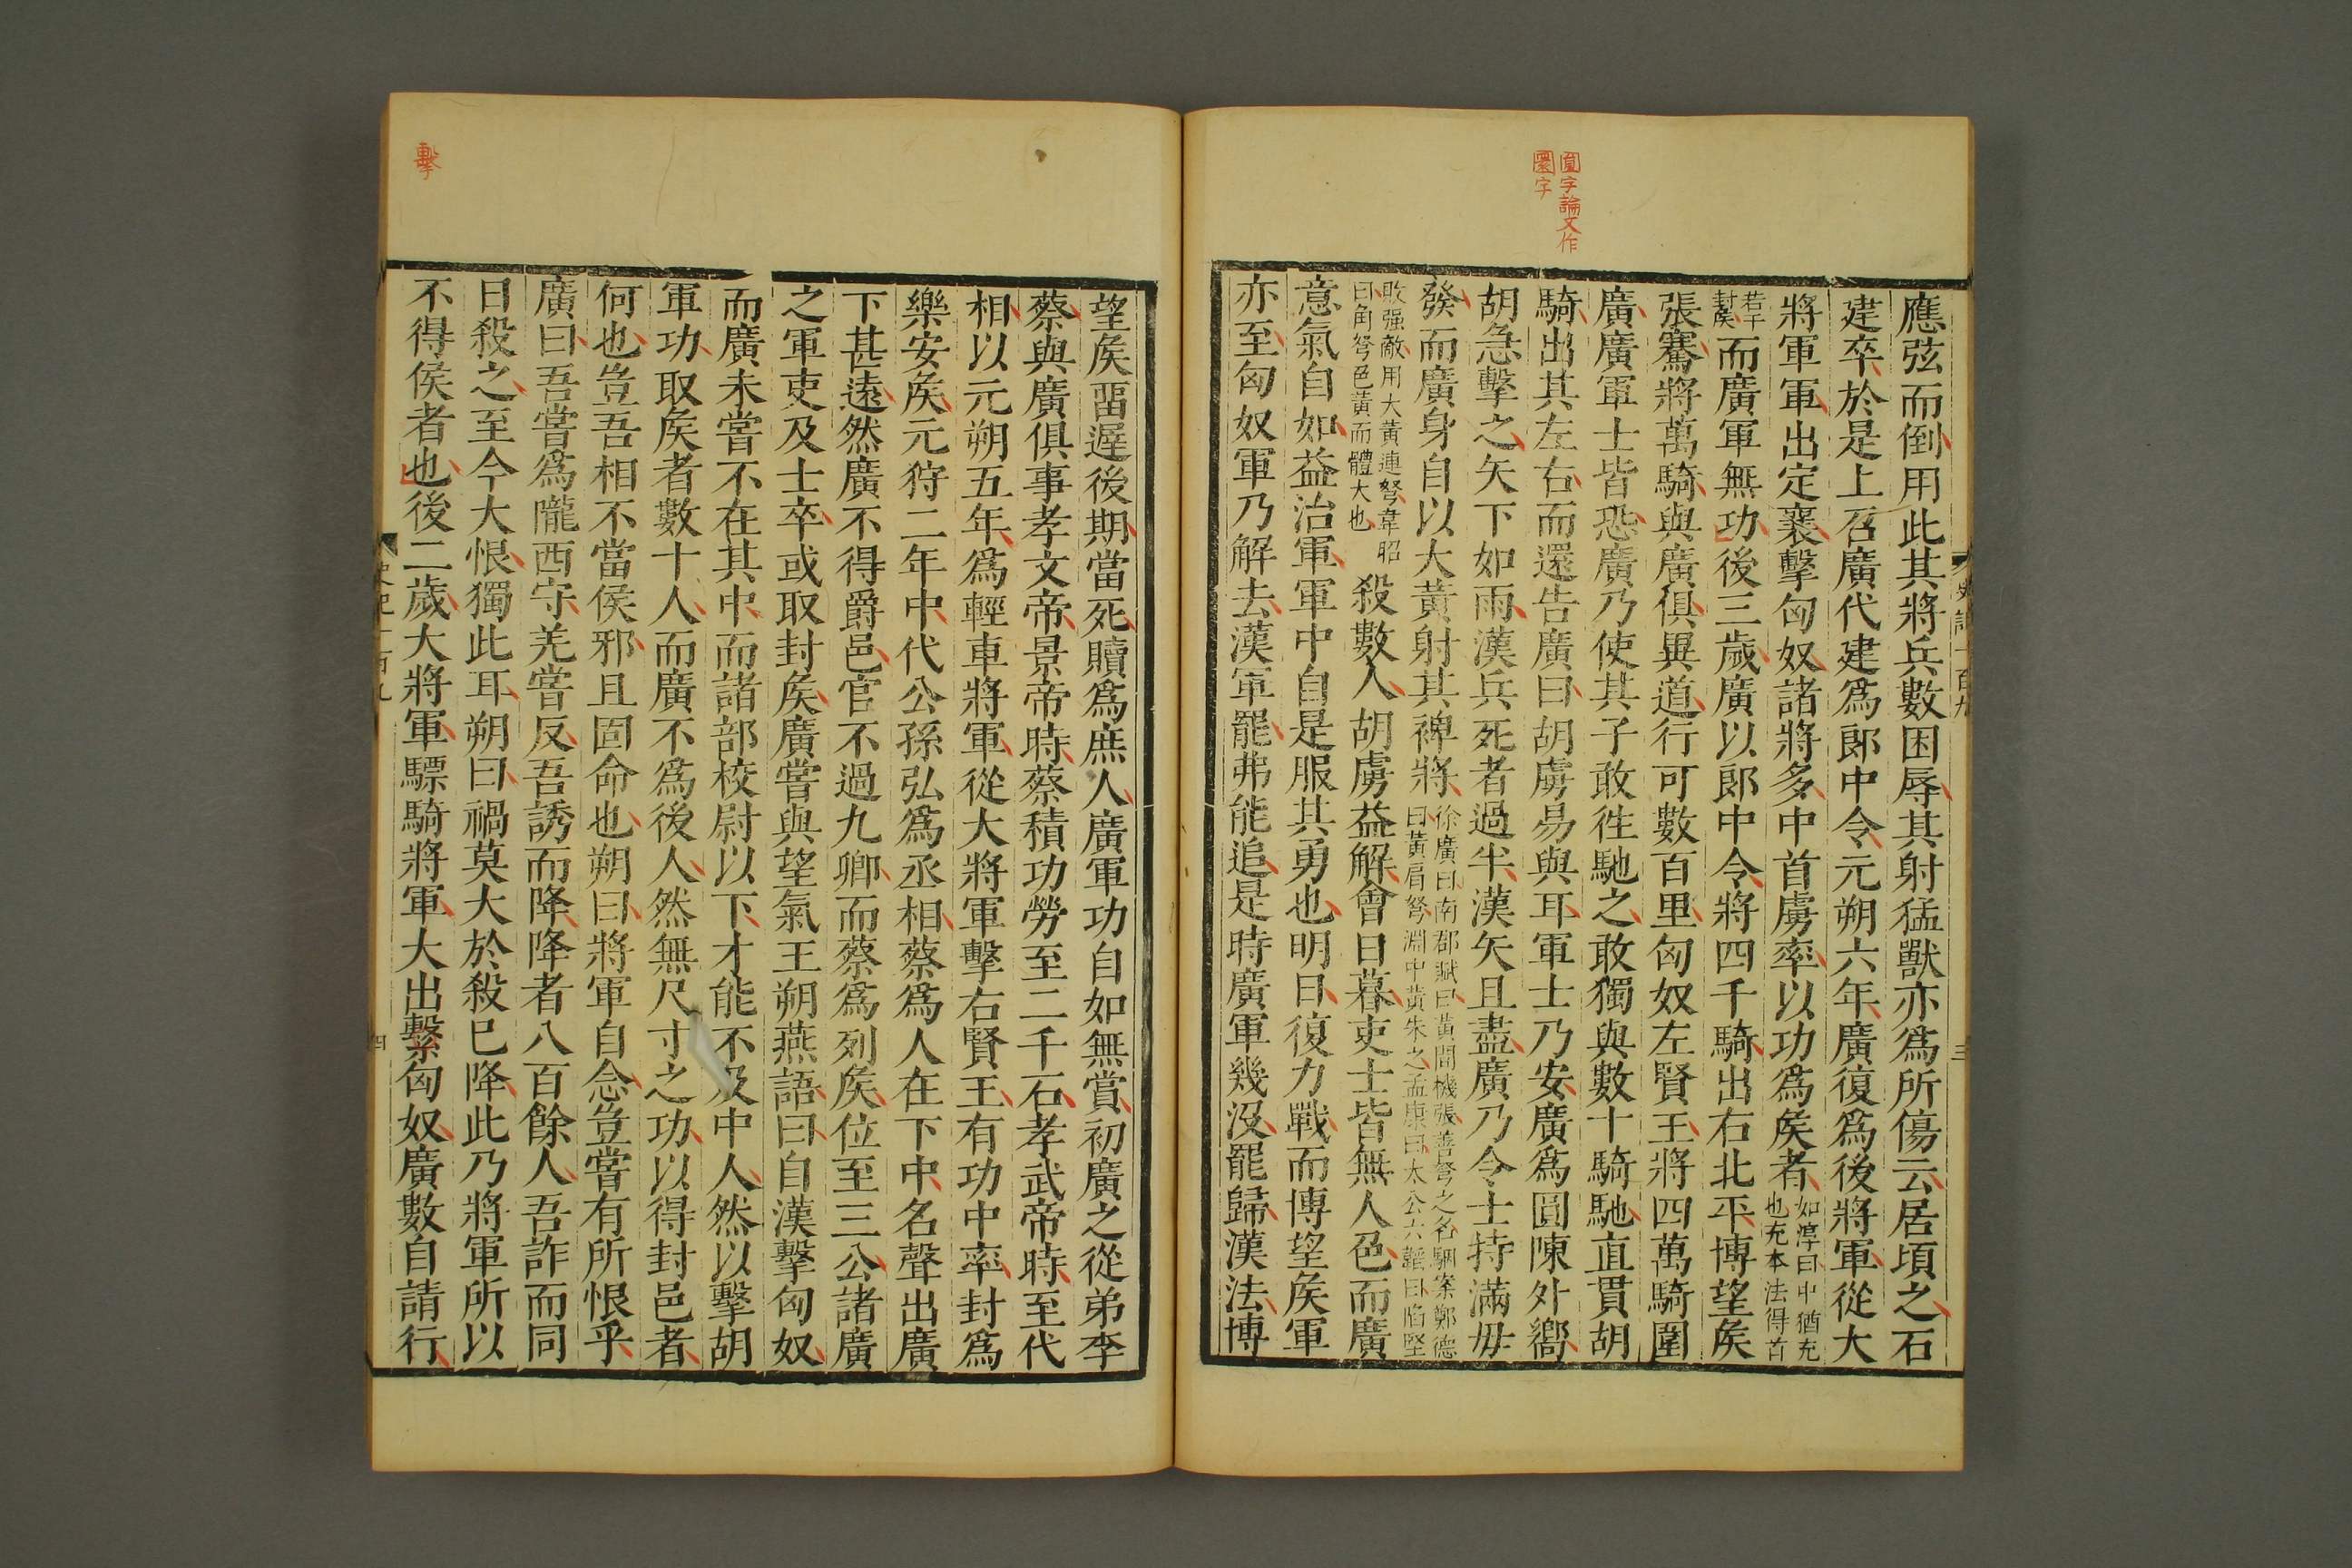 圓字論文作
圜字
應弦而倒用此其將兵數困辱其射猛獸亦爲所傷云居頃之石
建卒於是上召廣代建爲郎中令元朔六年廣復爲後將軍從大
將軍軍出定襄擊匈奴諸將多中首虜率以功爲矦者如淳曰中猶充
也充本法得首
若干
封矦而廣軍無功後三歲廣以郎中令將四千騎出右北平博望矦
張騫將萬騎與廣俱異道行可數百里匈奴左賢王將四萬騎圍
廣廣軍士皆恐廣乃使其子敢徃馳之敢獨與數十騎馳直貫胡
騎出其左右而還告廣曰胡虜易與耳軍士乃安廣爲圓陳外嚮
胡急擊之矢下如雨漢兵死者過半漢矢且盡廣乃令士持滿毋
發而廣身自以大黃射其裨將徐廣曰南郡賦曰黃間機張善弩之名駰案鄭德
曰黃肩弩淵中黃朱之孟康曰太公六韜曰陷堅
敗强敵用大黃連弩韋昭
曰角弩色黃而體大也殺數人胡虜益解會日暮吏士皆無人色而廣
意氣自如益治軍軍中自是服其勇也明日復力戰而博望矦軍
亦至匈奴軍乃解去漢軍罷弗能追是時廣軍幾沒罷歸漢法博
史記一百九
三
望矦畱遲後期當死贖爲庶人廣軍功自如無賞初廣之從弟李
蔡與廣俱事孝文帝景帝時蔡積功勞至二千石孝武帝時至代
相以元朔五年爲輕車將軍從大將軍擊右賢王有功中率封爲
樂安矦元狩二年中代公孫弘爲丞相蔡爲人在下中名聲出廣
下甚遠然廣不得爵邑官不過九卿而蔡爲列矦位至三公諸廣
之軍吏及士卒或取封矦廣嘗與望氣王朔燕語曰自漢擊匈奴
而廣未嘗不在其中而諸部校尉以下才能不及中人然以擊胡
軍功取矦者數十人而廣不爲後人然無尺寸之功以得封邑者
何也豈吾相不當侯邪且固命也朔曰將軍自念豈嘗有所恨乎
廣曰吾嘗爲隴西守羌嘗反吾誘而降降者八百餘人吾詐而同
日殺之至今大恨獨此耳朔曰禍莫大於殺已降此乃將軍所以
不得侯者也後二歲大將軍驃騎將軍大出繫匈奴廣數自請行
擊
史記一百九
四